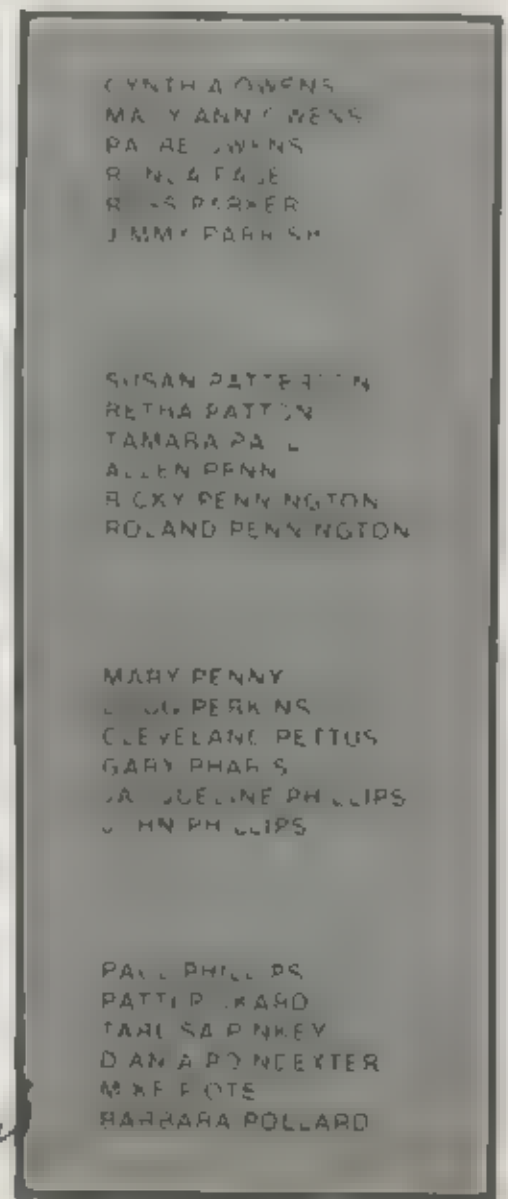 CYNTHIA OWENS
MARY ANN OWENS
OWENS
PARKER
JIMMY PARRISH
SUSAN PATTERSON
RETHA PATTON
TAMARA PAUL
ALLEN PENN
RICKY PENNINGTON
ROLAND PENNINGTON
MARY PENNY
PERKINS
CLEVELAND PETTUS
GARY PHARIS
JACQUELINE PHILLIPS
JOHN PHILLIPS
PAUL PHILLIPS
PINKEY
DIANA POINDEXTER
MIKE
BARBARA POLLARD